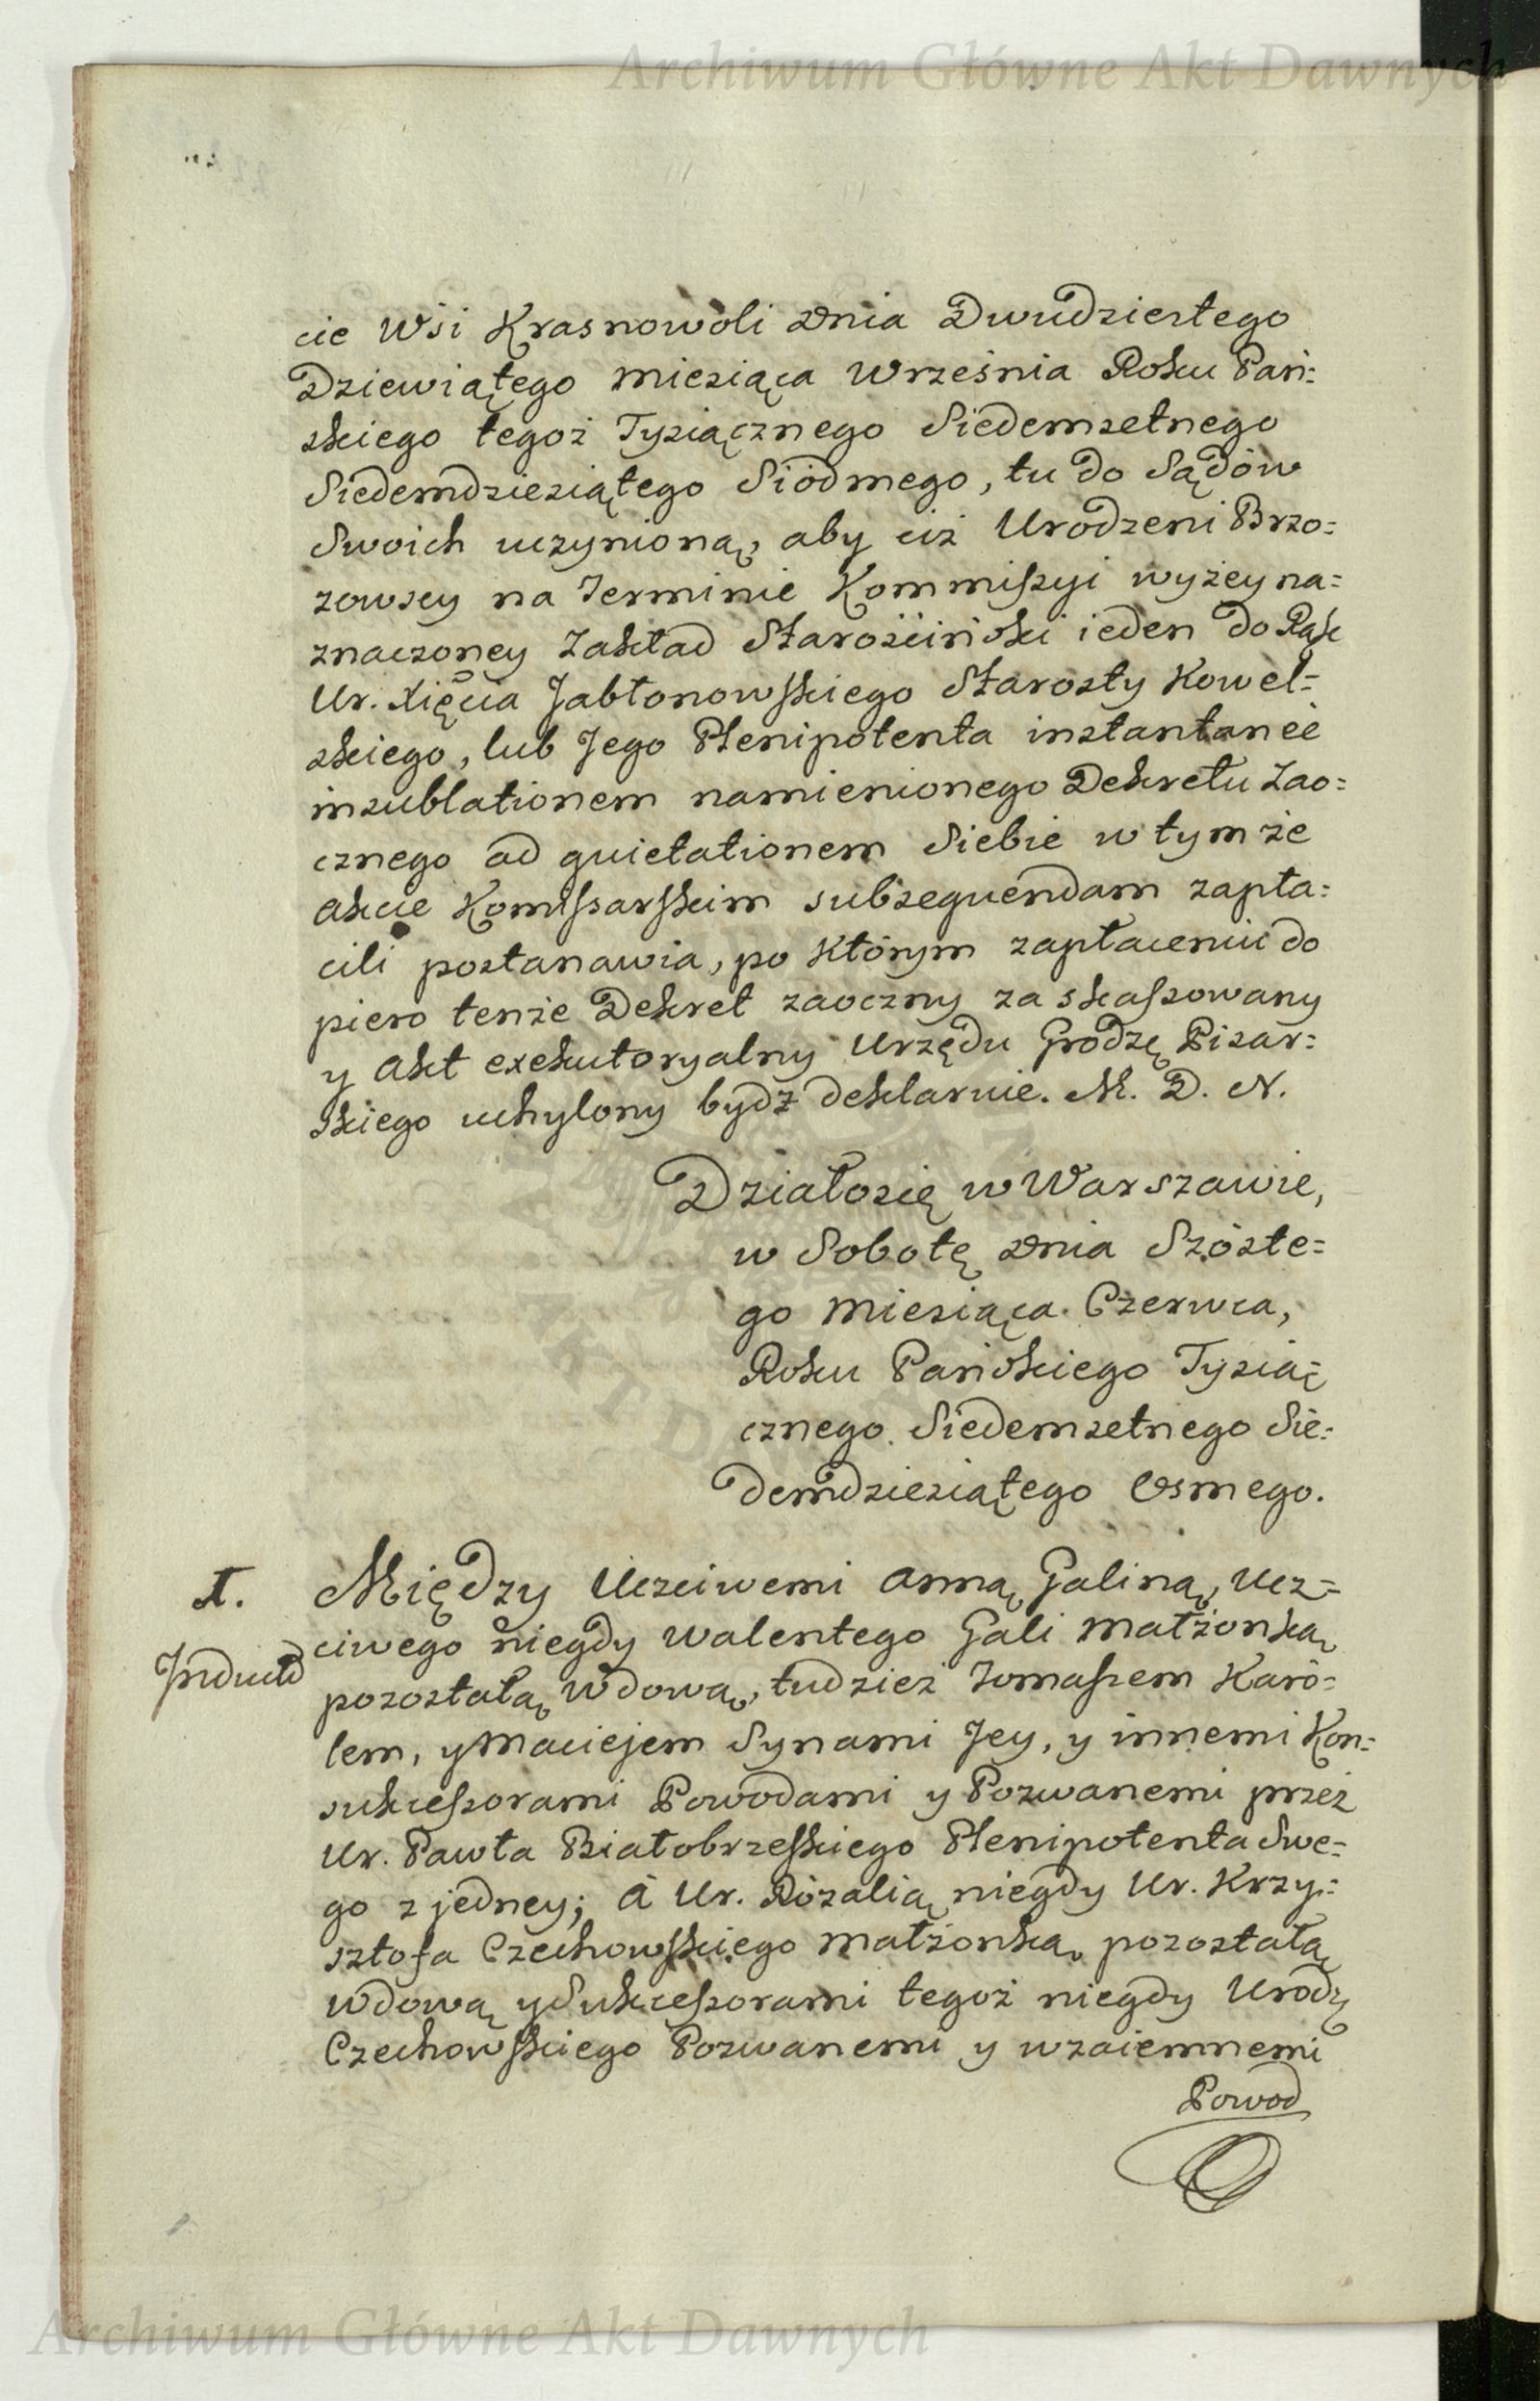 Archiwum Główne Akt Dawnych
cie Wsi Krasnowoli dnia Dwudziestego
Dziewiątego Miesiąca Września Roku Pań=
skiego tegoż Tysiącznego Siedemsetnego
Siedemdziesiątego Siódmego, tu do Sądów
Swoich uczynioną, aby ciż Urodzeni Brzo=
zowscy na Terminie Kommissyi wyżey na=
znaczoney Zakład Starościński ieden do Rąk
Ur. Xięcia Jabłonowskiego Starosty Kowel=
skiego, lub Jego Plenipotenta instantanee
in sublationem namienionego Dekretu Zao=
cznego ad quietationem Siebie w tym że
Akcie Komissarskim subsequendam zapła=
cili postanawia, po którym zapłaceniu do
piero tenże Dekret zaoczny za skassowany
y Akt exekutoryalny Urzędu Grodzę Pisar=
skiego uchylony bydź deklaruie. M. D. N.
Działosię w Warszawie,
w Sobotę dnia Szóste=
go Miesiąca Czerwca,
Roku Pańskiego Tysią=
cznego Siedemsetnego Sie=
demdziesiątego Osmego.
I. Między Uczciwemi Anną Galiną, Ucz=
ciwego niegdy Walentego Gali Małżonką
Inductā
pozostałą Wdową, tudzież Tomaszem Karo=
lem, y Maciejem Synami Jey, y innemi Kon=
sukcessorami Powodami y Pozwanemi przez
Ur. Pawła Białobrzeskiego Plenipotenta Swe=
go z jedney; à Ur. Rózalią niegdy Ur. Krzy=
sztofa Czechowskiego Małżonką pozostałą
Wdową y Sukcessorami tegoż niegdy Urodz
Czechowskiego Pozwanemi y wzaiemnemi
Powod
Archiwum Główne Akt Dawnych